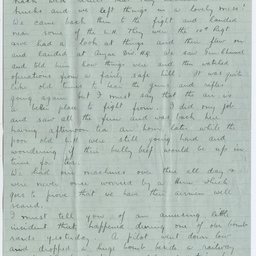 bricks and we left things in a lovely mess!
We came back then to the fight and landed
near some of the L.H. They were the 10th Regt
we had a look at things and then flew on
and landed at Anzac Div HQ. We saw Gen Chauvel
and told him how things were and then watched
operations from a fairly safe hill. It was quite
like old times to hear the guns and rifles
going again but I must say that the air is
the place to fight from. I did my job
and saw all the fun and was back here
having afternoon tea an hour later while the
poor old bill were still going hard and
wondering if their bully beef would be up in
time for tea.
We had our machines over there all day &
were never once worried by a Hun which
goes to prove that we have their airmen well
scared.
I must tell you of an amusing little
incident that happened during one of our bomb
raids yesterday. A pilot went down low
and dropped a huge bomb beside a railway